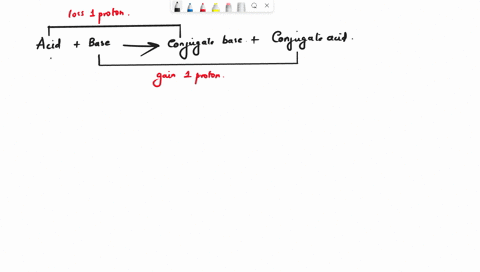 loss 1 proton.
Acid + Base → Conjugate base + Conjugate acid.
gain 1 proton.